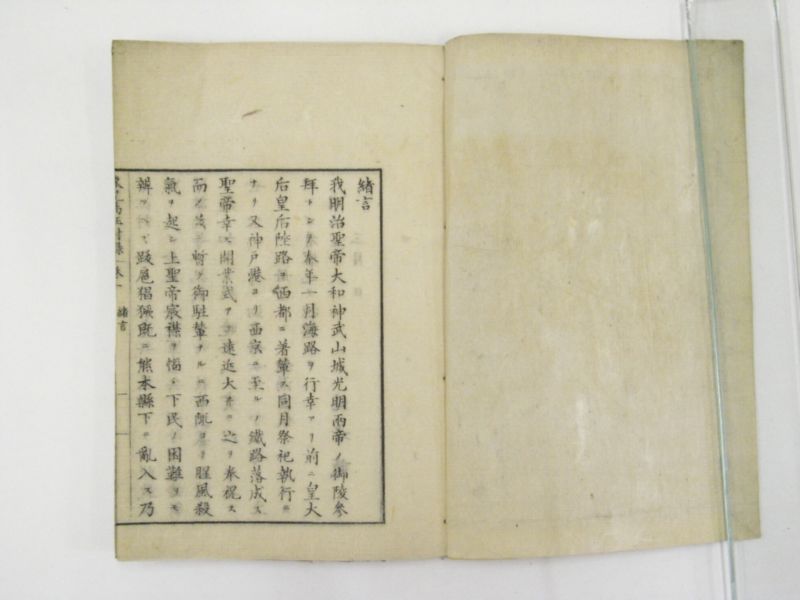 緒言
我明治聖帝大和神武山城光明両帝ノ御陵参
拜トシテ春年一月海路ヲ行幸アリ前ニ皇大
后皇后陸路西都ニ著輦ス同月祭祀執行ニ
ナリ又神戸港ヨリ西京ニ至ルノ鐵路落成ス
聖帝幸ス開業式アリ遠近大ニ之ヲ奉祝ス
而シテ暫ク御駐輦アルニ西陬ヨリ腥風殺
氣ヲ起シ上聖帝宸襟ヲ悩シ下民ノ困難ヲモ
辨ヘス跋扈猖獗既ニ熊本縣下ニ亂入ス乃
緒言
一